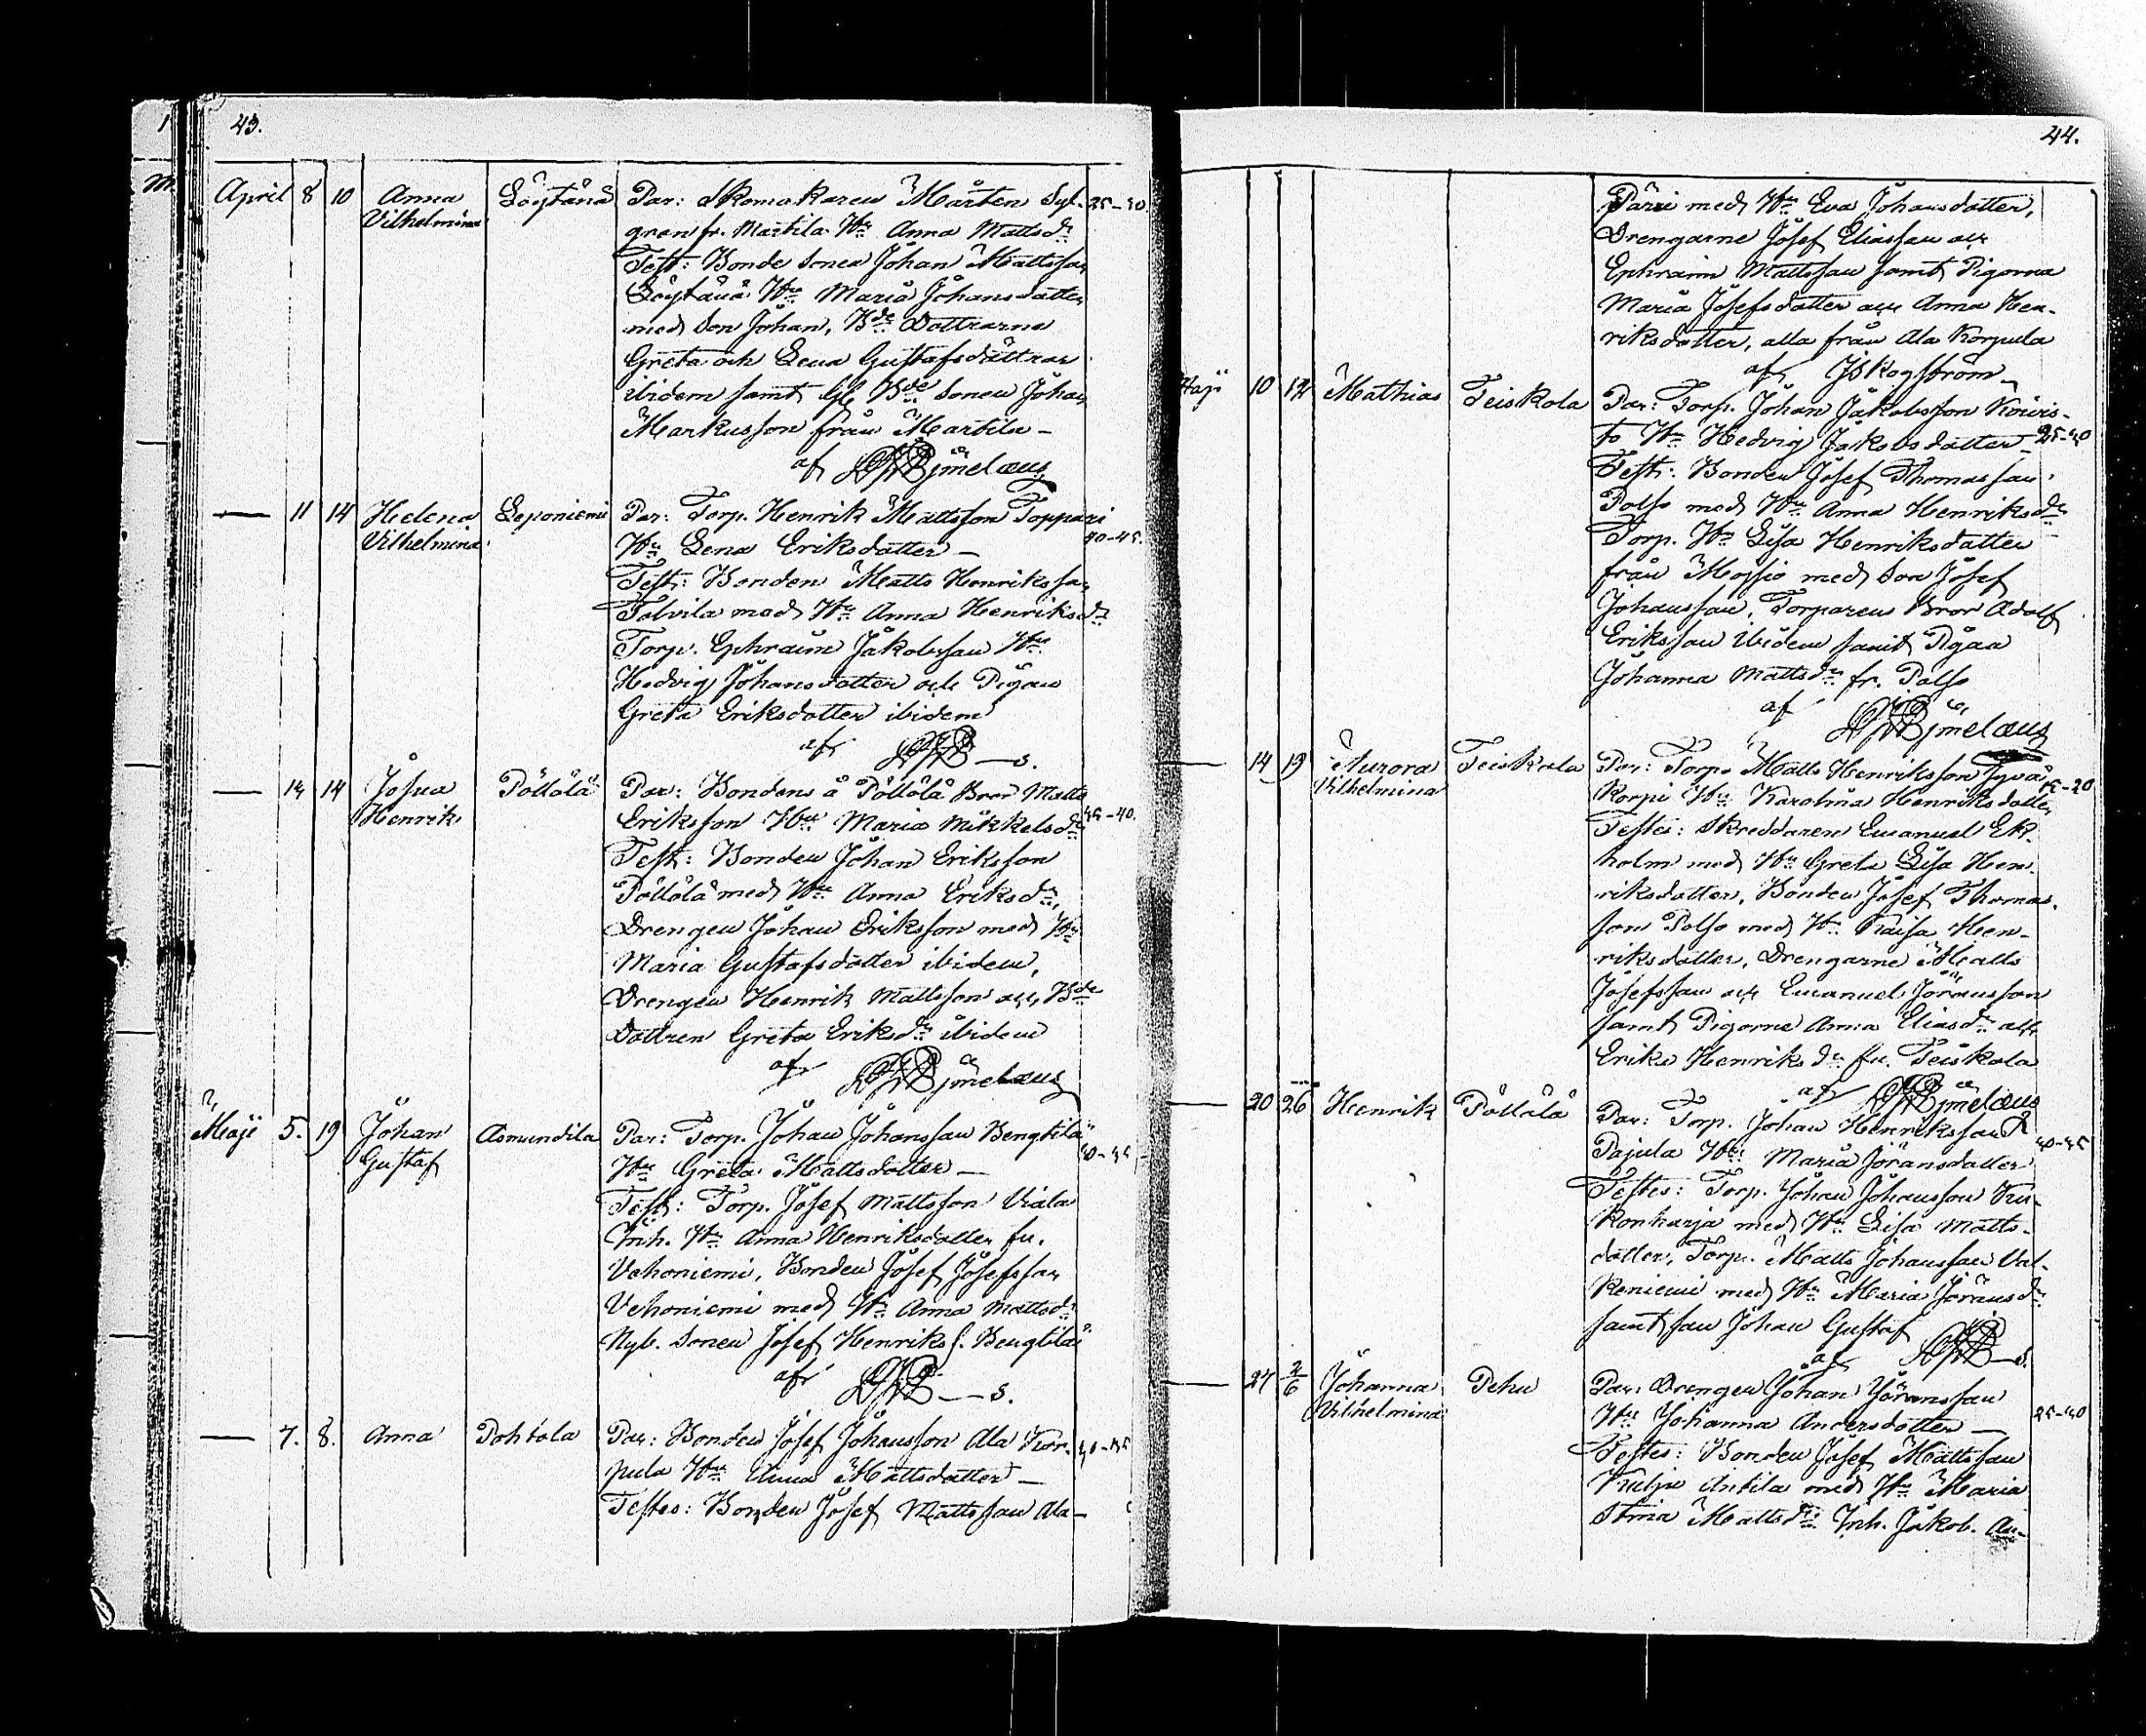 43.
April 8 10 Anna Vilhelmina Löytänä Par: Skomakaren Mårten Syl- 25-30.
gren fr. Martila Hu Anna Mattsdr
Test: Bonde Sonen Johan Mattsson
Löytänä Hu Maria Johansdotter
med Son Johan, Bde Döttrarna
Greta och Lena Gustafsdöttrar
ibidem samt Bde Sonen Johan
Markusson från Martila —
af
— 11 14 Helena Vilhelmina Leponiemi Par: Torp. Henrik Mattsson Toppari
Hu Lena Eriksdotter — 40-45.
Test: Bonden Matts Henriksson
Tolvila med Hu Anna Henriksdr
Torp. Ephraim Jakobsson Hu
Hedvig Johansdotter och Pigan
Greta Eriksdotter ibidem
af
— 14 Josua Henrik Pöllölä Par: Bondens å Pöllölä Bror Matts
Eriksson Hu Maria Mikkelsdr 35-40.
Test: Bonden Johan Eriksson
Pöllölä med Hu Anna Eriksdr,
Drengen Johan Eriksson med Hu
Maria Gustafsdotter ibidem,
Drengen Henrik Mattsson och Bde
Dottren Greta Eriksdr ibidem
af
Maji 5. 19 Johan Gustaf Asmundila Par: Torp. Johan Johansson Bengtilä
Hu Greta Mattsdotter —
Test: Torp. Josef Mattsson Viala
Inh. Hu Anna Henriksdotter fr.
Vehoniemi, Bonden Josef Josefsson
Vehoniemi med Hu Anna Mattsdr
Nyb. Sonen Josef Henrikss. Bengtilä
af
— 7. 8. Anna Pohtola Par: Bonden Josef Johansson Ala Kor-
pula Hu Anna Mattsdotter —
Testes: Bonden Josef Mattsson Ala-
44.
Päri med Hu Eva Johansdotter,
Drengarne Josef Eliasson och
Ephraim Mattsson samt Pigorna
Maria Josefsdotter och Anna Hen-
riksdotter, alla från Ala Korpula
af JSkogström
Maji 10 12 Mathias Teiskola Par: Torp. Johan Jakobsson Koivis-
to Hu Hedvig Jakobsdotter — 25-30
Test: Bonden Josef Thomasson
Polso med Hu Anna Henriksdr
Torp. Hu Lisa Henriksdotter
från Mossio med Son Josef
Johansson, Torparen Bror Adolf
Eriksson ibidem samt Pigan
Johanna Mattsdr fr. Polso
af
— 14 19 Aurora Vilhelmina Teiskola Par: Torp. Matts Henriksson Syvä
Korpi Hu Karolina Henriksdotter 15-20
Testes: Skreddaren Emanuel Ek-
holm med Hu Greta Lisa Hen-
riksdotter, Bonden Josef Thomas-
son Polso med Hu Kaisa Hen-
riksdotter, Drengarne Matts
Josefsson och Emanuel Jöransson
samt Pigorna Anna Eliasdr och
Erika Henriksdr fr. Teiskola
af
— 20 26 Henrik Pöllölä Par: Torp. Johan Henriksson
Pajula Hu Maria Jöransdotter
Testes: Torp. Johan Johansson Kur-
konharja med Hu Lisa Matts-
dotter, Torp. Matts Johansson Val-
keniemi med Hu Maria Jöransdr
samt son Johan Gustaf
af
— 27 2/6 Johanna Vilhelmina Pehu Par: Drengen Johan Jöransson
Hu Johanna Andersdotter — 25-30
Testes: Bonden Josef Mattsson
Antila med Hu Maria
Stina Mattsdr Inh. Jakob An-